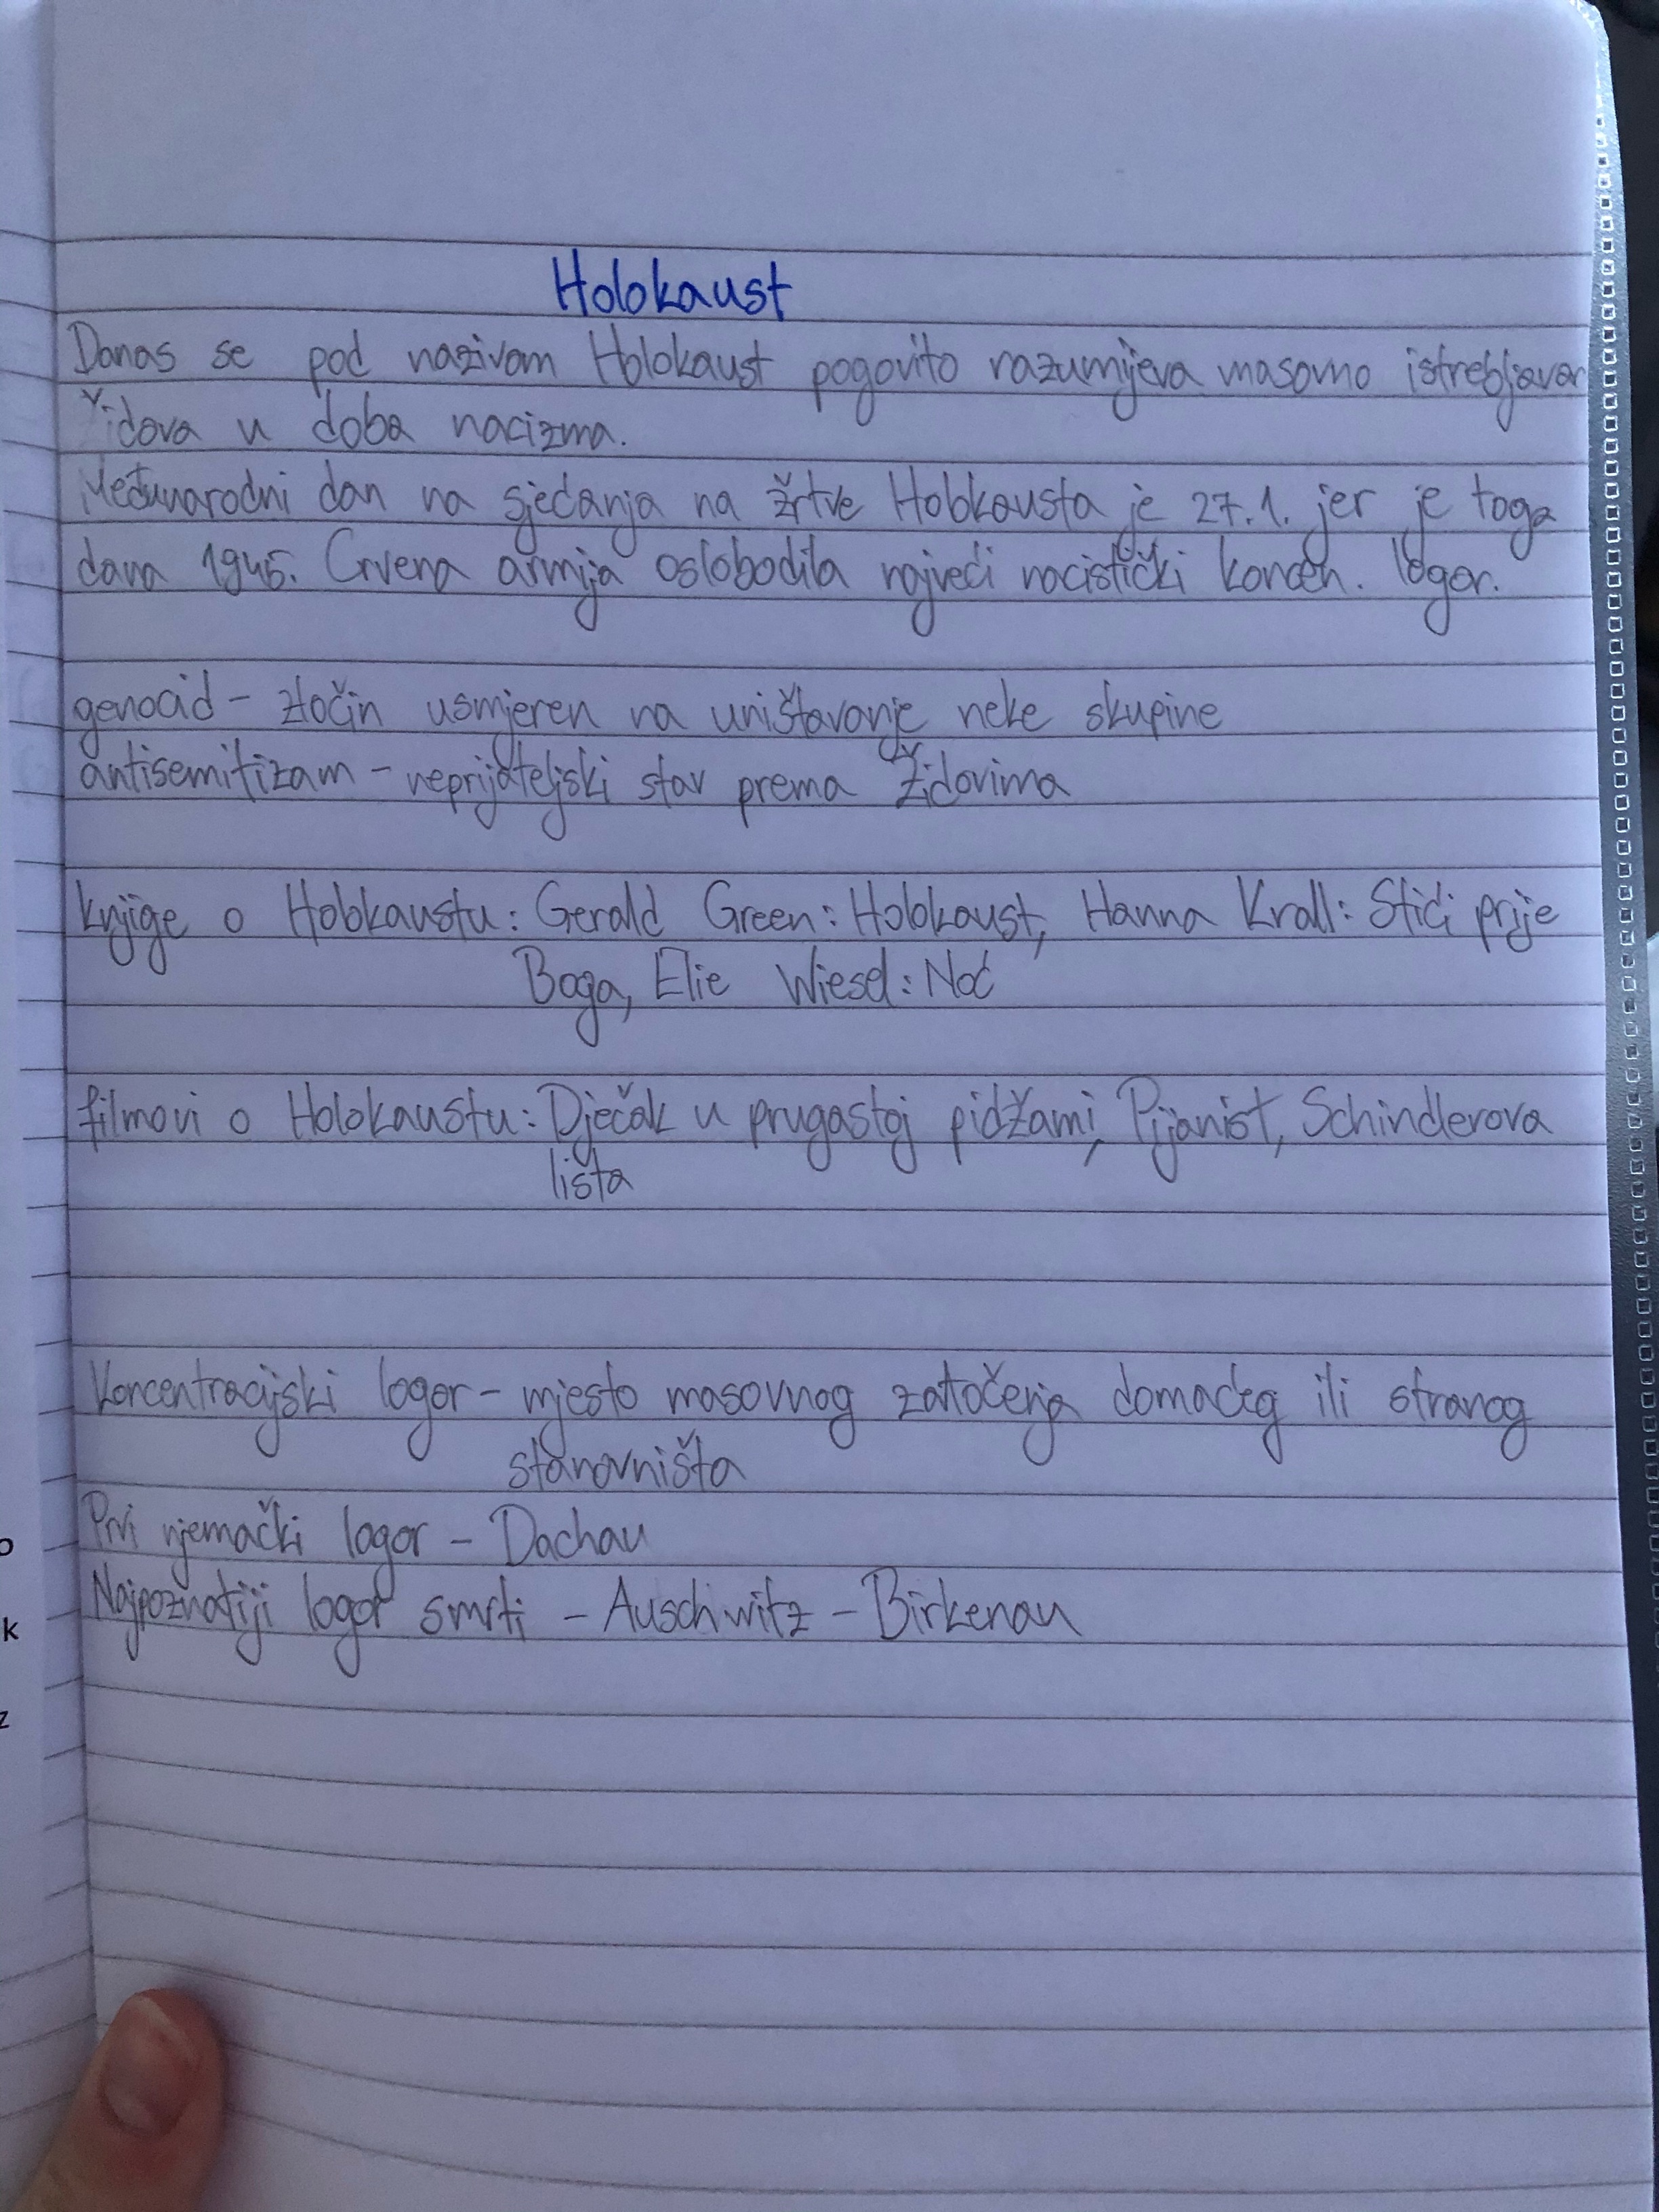 Holokaust
Danas se pod nazivom Holokaust pogovito razumijeva masovno istrebljavan
Židova u doba nacizma.
Međunarodni dan na sjećanja na žrtve Holokausta je 27.1. jer je toga
dana 1945. Crvena armija oslobodila najveći nacistički koncen. logor.
genocid - zločin usmjeren na uništavanje neke skupine
antisemitizam - neprijateljski stav prema Židovima
knjige o Holokaustu: Gerald Green: Holokaust, Hanna Krall: Stići prije
Boga, Elie Wiesel: Noć
filmovi o Holokaustu: Dječak u prugastoj pidžami, Pijanist, Schindlerova
lista
Koncentracijski logor - mjesto masovnog zatočenja domaćeg ili stranog
stanovništa
Prvi njemački logor - Dachau
Najpoznatiji logor smrti - Auschwitz - Birkenau
o
k
z